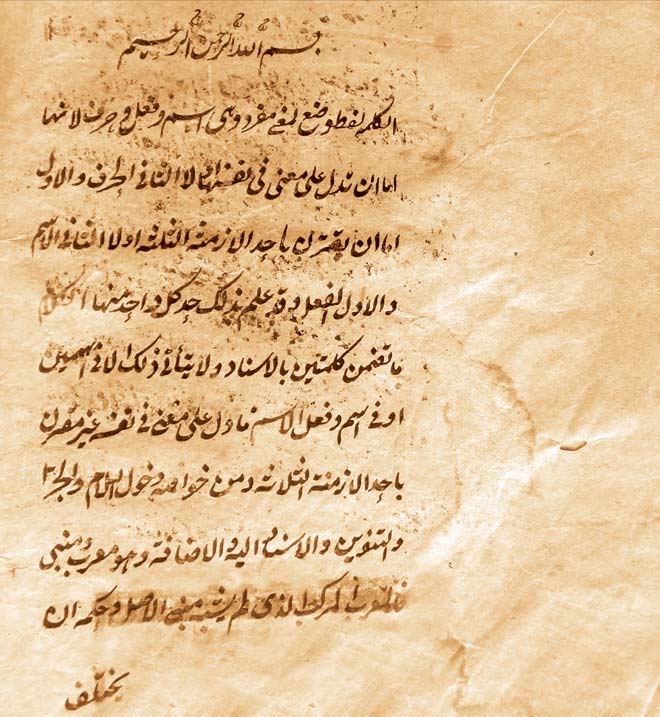 بسم الله الرحمن الرحيم
الكلمة لفظ وضع لمعنى مفرد وهى اسم وفعل وحرف لانها
اما ان تدل على معنى فى نفسها او لا الثانى الحرف والاول
اما ان يقترن باحد الازمنة الثلثة او لا الثانى الاسم
والاول الفعل وقد علم بذلك حد كل واحد منها الكلام
ما تضمن كلمتين بالاسناد ولا يتأتى ذلك الا فى اسمين
او فى اسم وفعل الاسم ما دل على معنى فى نفسه غير مقترن
باحد الازمنة الثلاثة ومن خواصه دخول اللام والجر
والتنوين والاسناد اليه والاضافة وهو معرب ومبنى
فالمعرب المركب الذى لم يشبه مبنى الاصل وحكمه ان
يختلف